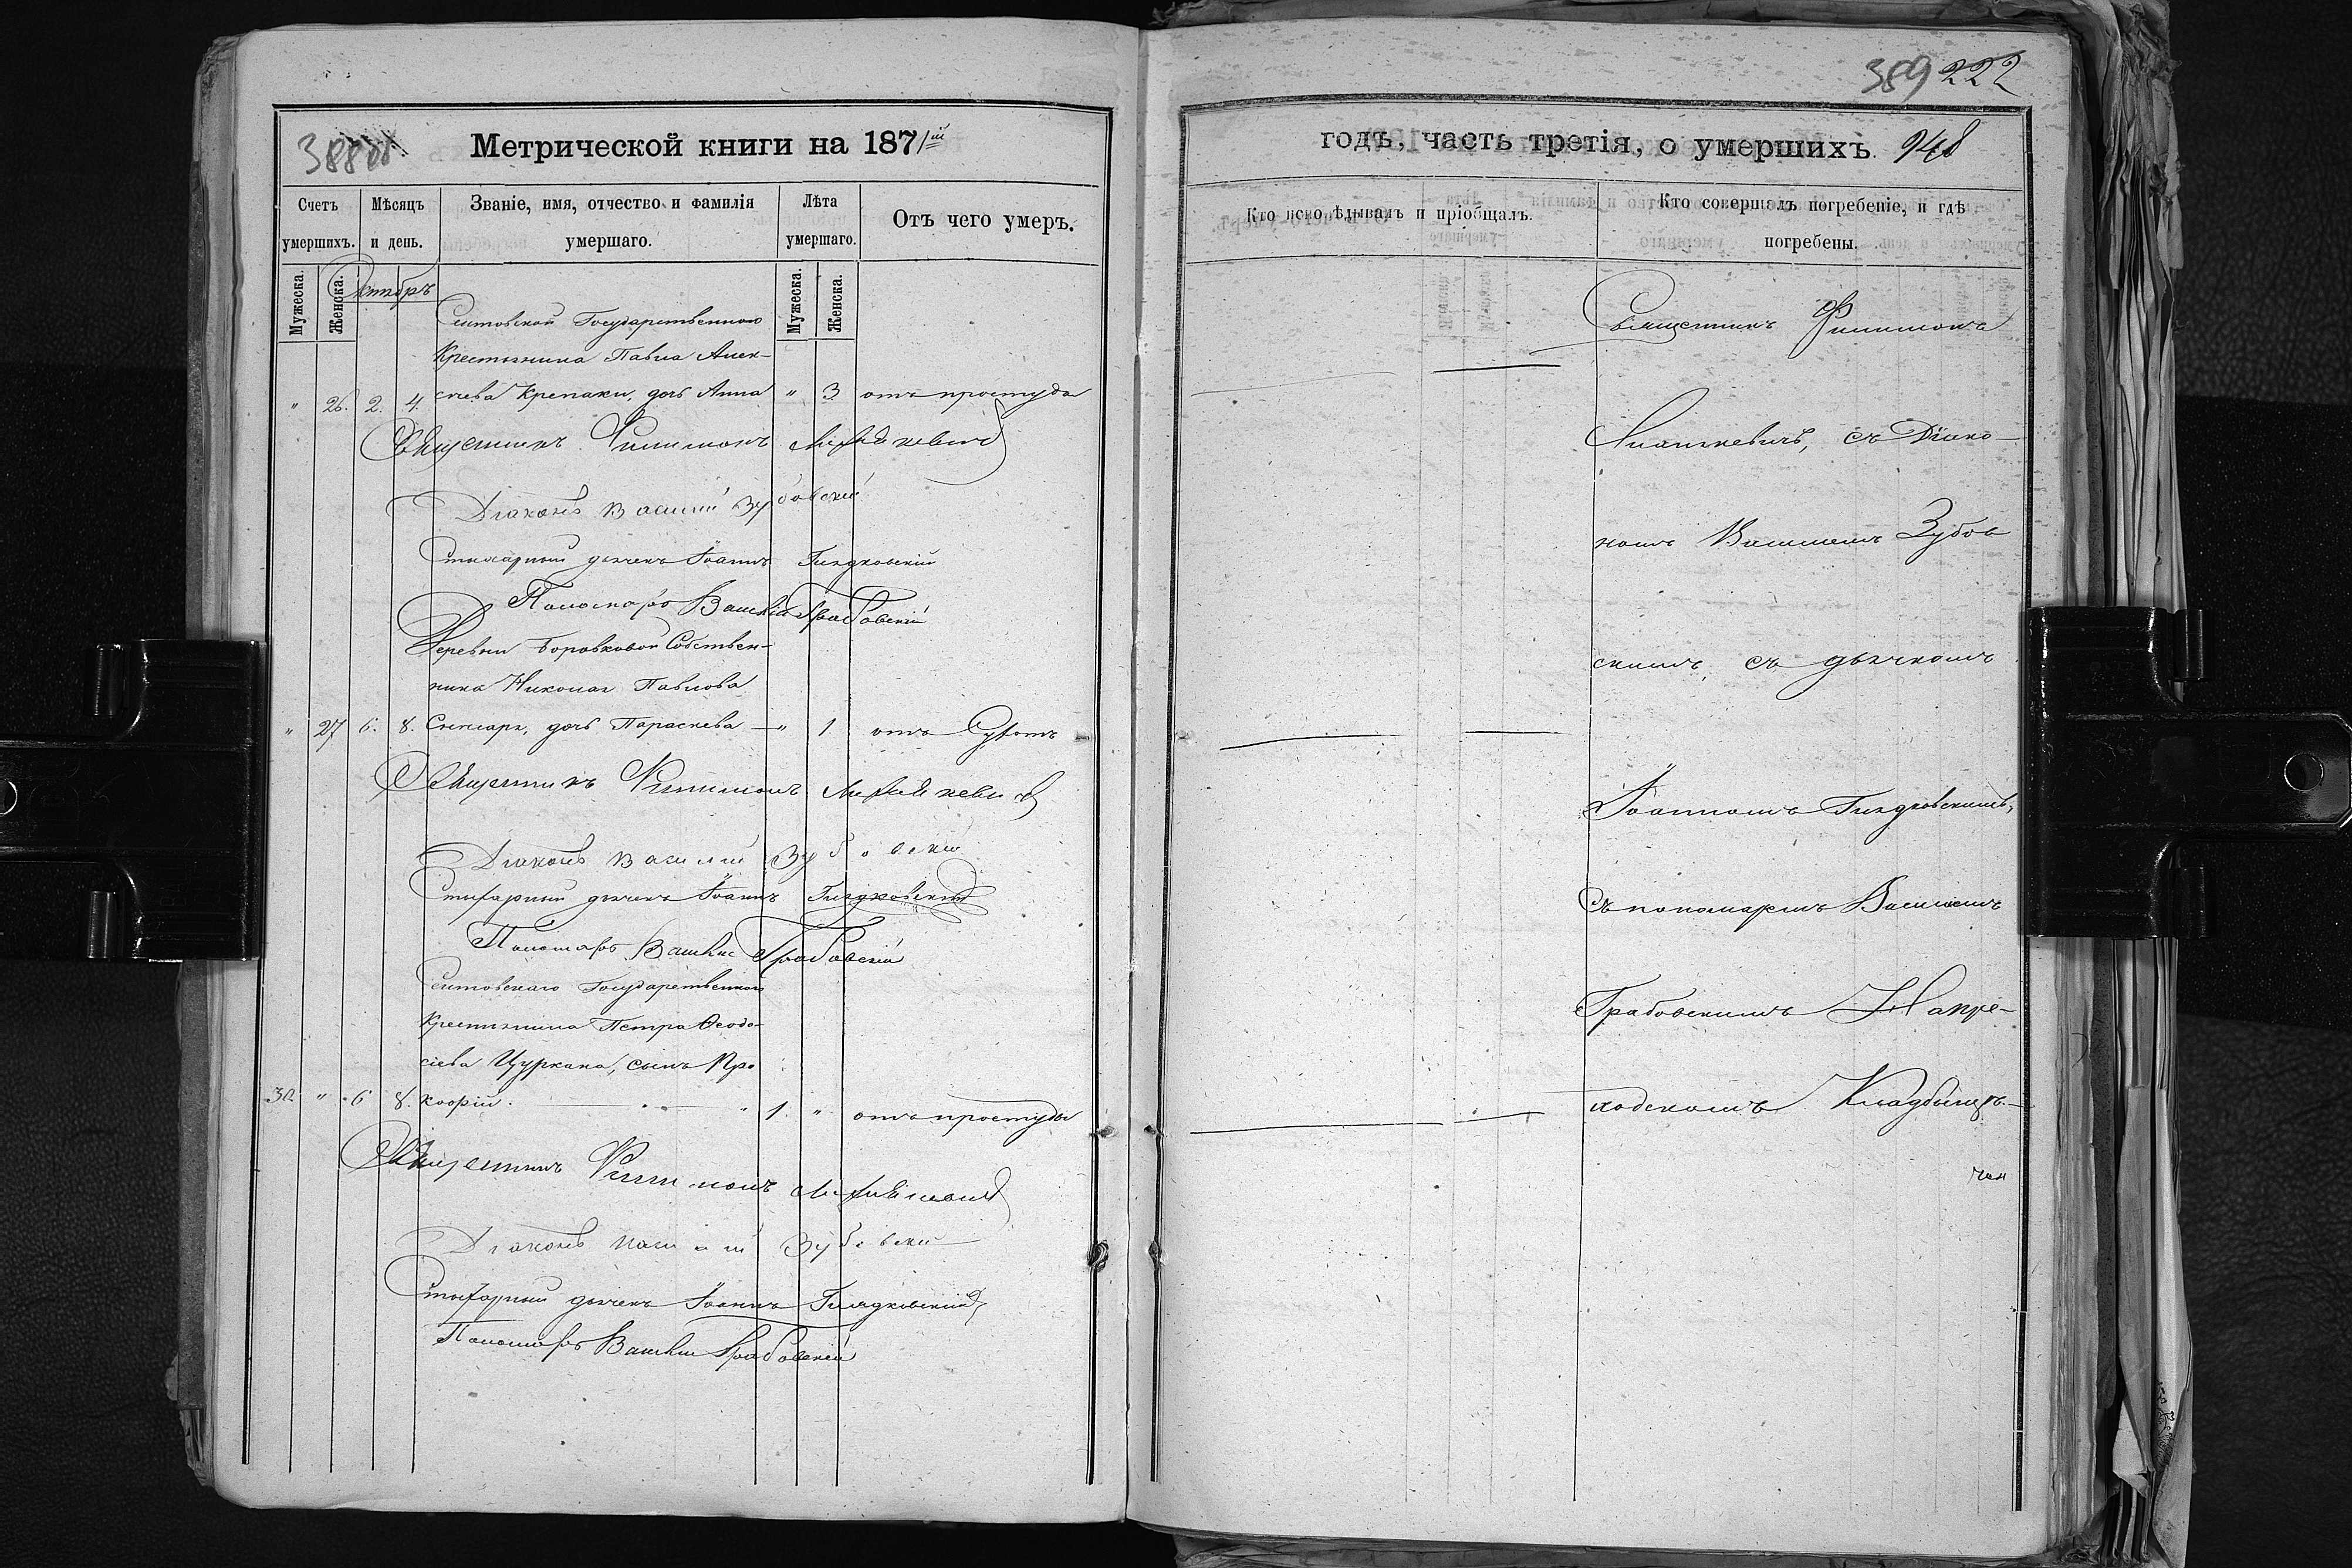 388
Метрической книги на 1871ій
Счетъ умершихъ.
Мѣсяцъ и день.
Званіе, имя, отчество и фамилія умершаго.
Лѣта умершаго.
Отъ чего умеръ.
Мужеска.
Женска.
Мужеска.
Женска.
Октябрь
Ситовской Государственнаго
Крестьянина Павла Алек-
сѣева Крепаки, дочь Анна
" 26. 2. 4. " 3 отъ простуда
Священникъ Филимонъ
Діаконъ Василій Зубовскій
Стихарный дьячекъ Іоаннъ Гиздковскій
Пономарь Василій Грабовскій
Деревни Боровковой Собствен-
ника Николая Павлова
" 27 6. 8. Слюсаря, дочь Параскева — " 1 отъ Сухотъ
Священникъ Филимонъ
Діаконъ Василій Зубовскій
Стихарный дьячекъ Іоаннъ Гиздковскій
Пономарь Василій Грабовскій
Ситовскаго Государственнаго
Крестьянина Петра Ѳеодо-
сіева Цуркана, сынъ Про
30. " 6 8. кофій. 1. " отъ простуды
Священникъ Филимонъ
Діаконъ Василій Зубовскій
Стихарный дьячекъ Іоаннъ Гиздковскій
Пономарь Василій Грабовскій
389 222
годъ, часть третія, о умершихъ. 948
Кто исповѣдывалъ и пріобщалъ.
Кто совершалъ погребеніе, и гдѣ погребены.
Священникъ Филимонъ
съ Діако-
номъ Василіемъ Зубов
скимъ, съ дьячкомъ
Іоанномъ Гиздковскимъ,
Съ пономаремъ Василіемъ
Грабовскимъ На при-
ходскомъ Кладбищѣ.